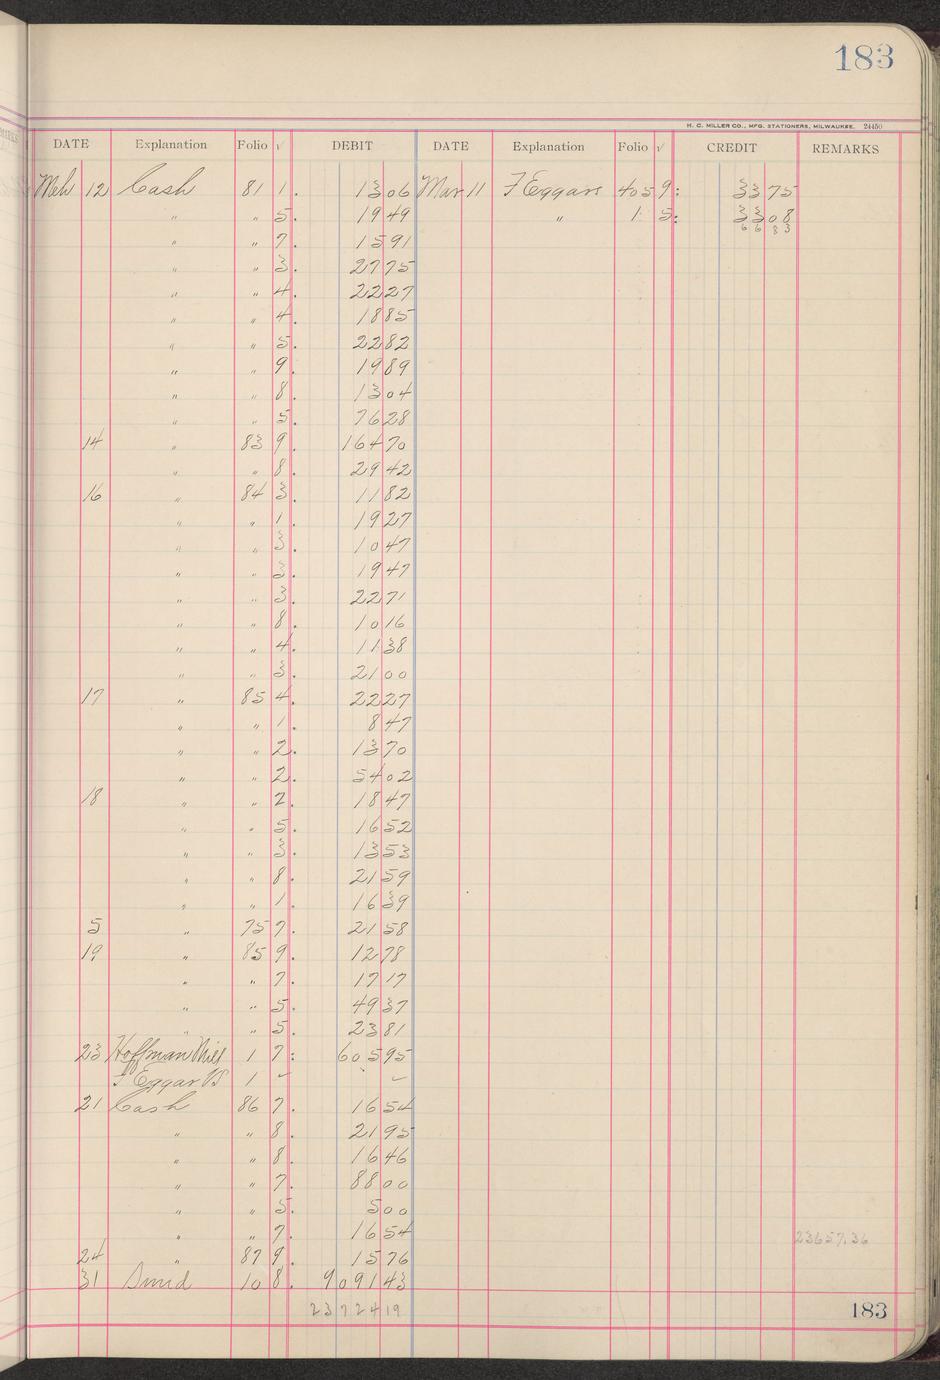 183
H. C. MILLER CO., MFG. STATIONERS, MILWAUKEE. 24450
DATE Explanation Folio √ DEBIT DATE Explanation Folio √ CREDIT REMARKS
Mch 12 Cash 81 1. 13 06 Mar 11 F Eggars 405 9: 33 75
" " 5. 19 49 " 1 5: 33 08
" " 7. 15 91 66 83
" " 3. 27 75
" " 4. 22 27
" " 4. 18 85
" " 5. 22 82
" " 9. 19 89
" " 8. 13 04
" " 5. 76 28
14 " 83 9. 164 70
" " 8. 29 42
16 " 84 3. 11 82
" " 1. 19 27
" " 3. 10 47
" " 3. 19 47
" " 3. 22 71
" " 8. 10 16
" " 4. 11 38
" " 3. 21 00
17 " 85 4. 22 27
" " 1. 8 47
" " 2. 13 70
" " 2. 54 02
18 " " 2. 18 47
" " 5. 16 52
" " 3. 13 53
" " 8. 21 59
" " 1. 16 39
5 " 75 7. 21 58
19 " 85 9. 12 78
" " 7. 17 17
" " 5. 49 37
" " 5. 23 81
23 Hoffman 1 7: 605 95
F Eggar 1 ✓ ✓
21 Cash 86 7. 16 54
" " 8. 21 95
" " 8. 16 46
" " 7. 88 00
" " 5. 5 00
" " 7. 16 54
23657.36
24 " 87 9. 15 76
31 Smid 10 8. 9091 43
23724 19
183